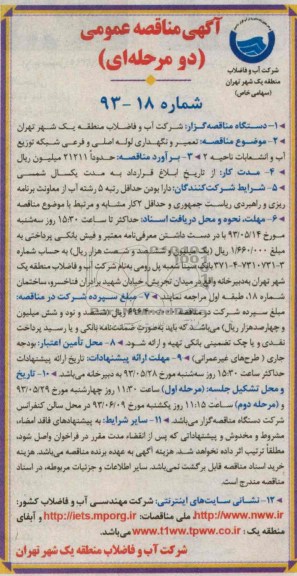 آگهی مناقصه عمومی
(دو مرحله‌ای)
شرکت آب و فاضلاب
منطقه یک شهر تهران
(سهامی خاص)
شماره ۱۸-۹۳
۱- دستگاه مناقصه‌گزار: شرکت آب و فاضلاب منطقه یک شهر تهران
۲- موضوع مناقصه: تعمیر و نگهداری لوله اصلی و فرعی شبکه توزیع
آب و انشعابات ناحیه ۲ ۳- برآورد مناقصه: حدوداً ۲۱۲۱۱ میلیون ریال
۴- مدت کار: از تاریخ ابلاغ قرارداد به مدت یکسال شمسی
۵- شرایط شرکت‌کنندگان: دارا بودن حداقل رتبه ۵ رشته آب از معاونت برنامه
ریزی و راهبردی ریاست جمهوری و حداقل ۲کار مشابه و مرتبط با موضوع مناقصه
۶- مهلت، نحوه و محل دریافت اسناد: حداکثر تا ساعت ۱۵/۳۰ روز سه‌شنبه
مورخ ۹۳/۰۵/۱۴ با در دست داشتن معرفی‌نامه معتبر و فیش بانکی پرداختی به
مبلغ ۱/۶۶۰/۰۰۰ ریال (یک میلیون و ششصد و شصت هزار ریال) به حساب شماره
۳۷۱-۴-۷۳۱۰۷۳۱-۳ بانک سینا شعبه پل رومی به‌نام شرکت آب و فاضلاب منطقه یک
شهر تهران به‌دبیرخانه واقع در میدان تجریش، خیابان شهید برادران فناخسرو، ساختمان
شماره ۱۸، طبقه اول مراجعه نمایند ۷- مبلغ سپرده شرکت در مناقصه:
مبلغ سپرده شرکت در مناقصه ریال و نود و شش میلیون
و چهارصدهزار ریال) می‌باشد که باید به‌صورت ضمانت‌نامه بانکی و یا رسید پرداخت
نقدی و یا چک تضمینی بانکی تهیه و ارائه شود ۸- محل تأمین اعتبار: بودجه
جاری (طرح‌های غیرعمرانی) ۹- مهلت ارائه پیشنهادات: تاریخ ارائه پیشنهادات
حداکثر ساعت ۱۵/۳۰ روز سه‌شنبه مورخ ۹۳/۰۵/۲۸ به دبیرخانه می‌باشد ۱۰- تاریخ
و محل تشکیل جلسه: (مرحله اول) ساعت ۱۱/۳۰ روز چهارشنبه مورخ ۹۳/۰۵/۲۹
و (مرحله دوم) ساعت ۱۱/۱۵ روز یکشنبه مورخ ۹۳/۰۶/۰۹ در محل سالن کنفرانس
شرکت دستگاه مناقصه‌گزار می‌باشد. ۱۱- سایر شرایط: به پیشنهادهای فاقد امضاء،
مشروط و مخدوش و پیشنهاداتی که پس از انقضاء مدت مقرر در فراخوان واصل شود،
مطلقاً ترتیب اثر داده نخواهد شد. هزینه آگهی به عهده برنده مناقصه می‌باشد. هزینه
خرید اسناد مناقصه قابل برگشت نمی‌باشد. سایر اطلاعات و جزئیات مربوطه، در اسناد
مناقصه مندرج است.
۱۲- نشانی سایت‌های اینترنتی: شرکت مهندسی آب و فاضلاب کشور:
http://www.nww.ir، ملی مناقصات: http://iets.mporg.ir و آبفای
منطقه یک: www.t1ww.tpww.co.ir می‌باشد.
شرکت آب و فاضلاب منطقه یک شهر تهران